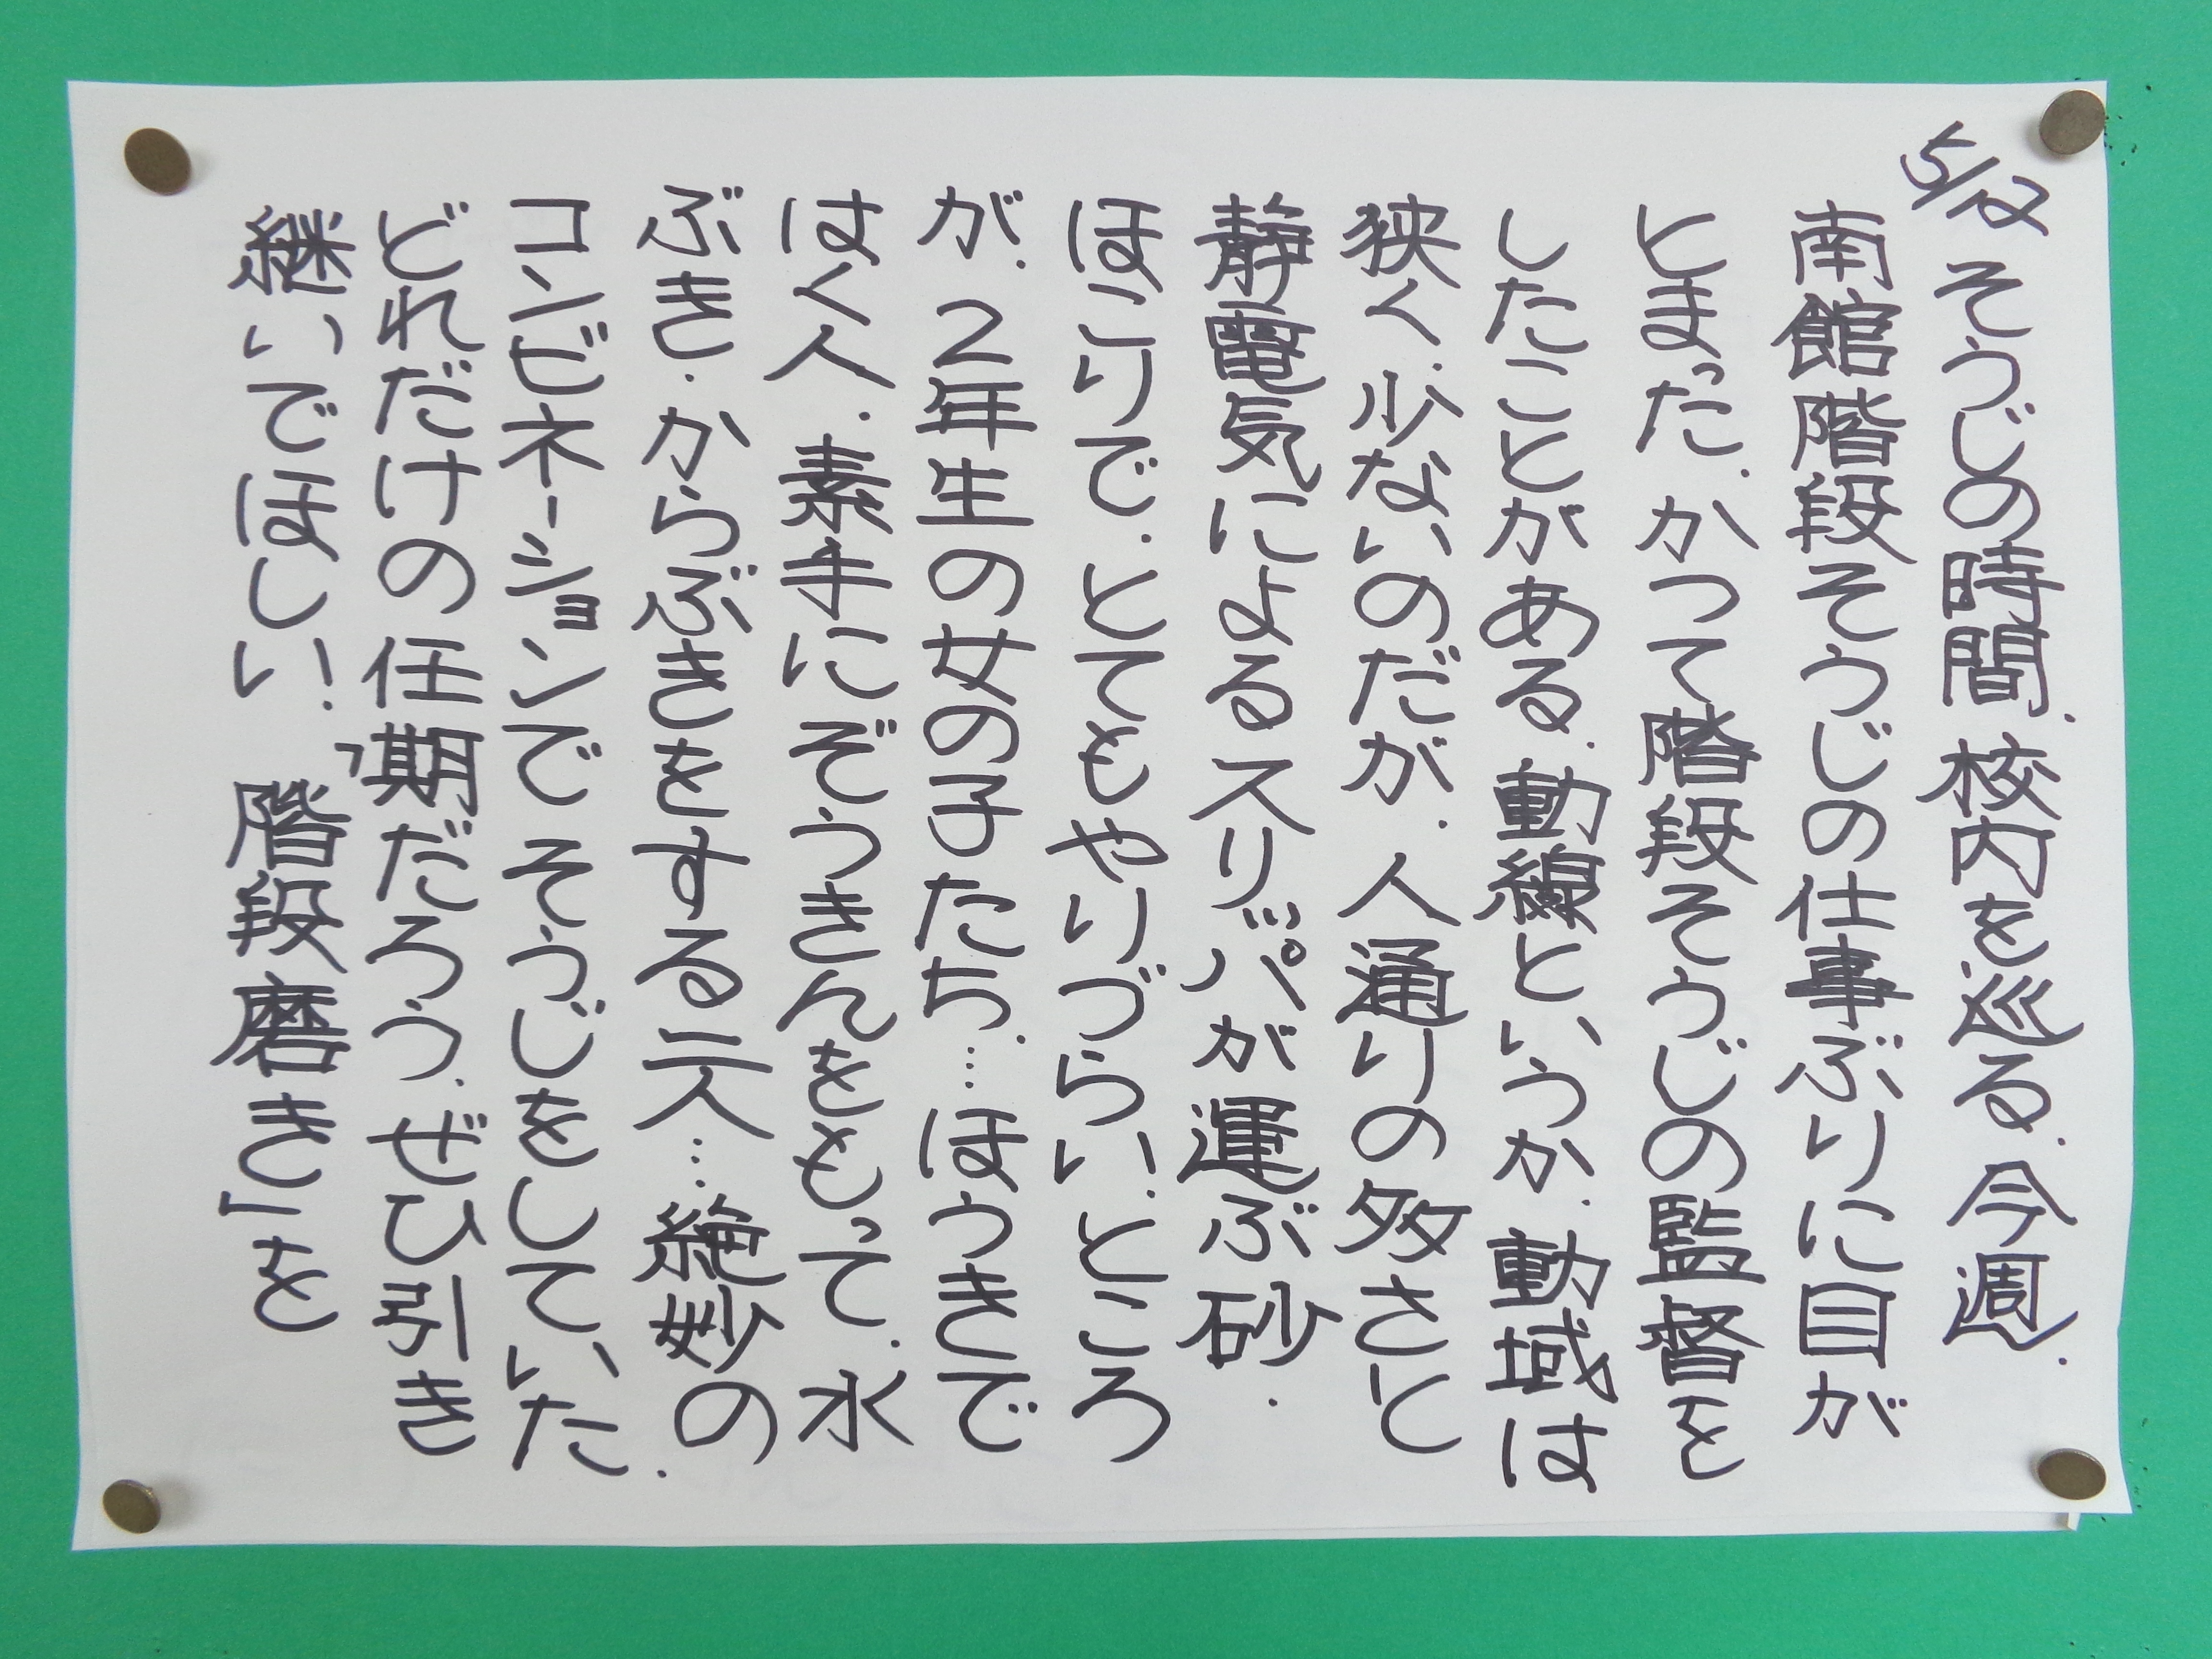 5/12 そうじの時間.校内を巡る.今週.
南館階段そうじの仕事ぶりに目が
とまった.かつて階段そうじの監督を
したことがある.動線というか.動域は
狭く.少ないのだが.人通りの多さと
静電気によるスリッパが運ぶ砂.
ほこりで.とてもやりづらい.ところ
が.2年生の女の子たち.…ほうきで
はく人.素手にぞうきんをもって.水
ぶき.からぶきをする二人…絶妙の
コンビネーションでそうじをしていた.
どれだけの任期だろう.ぜひ引き
継いでほしい.「階段磨き」を